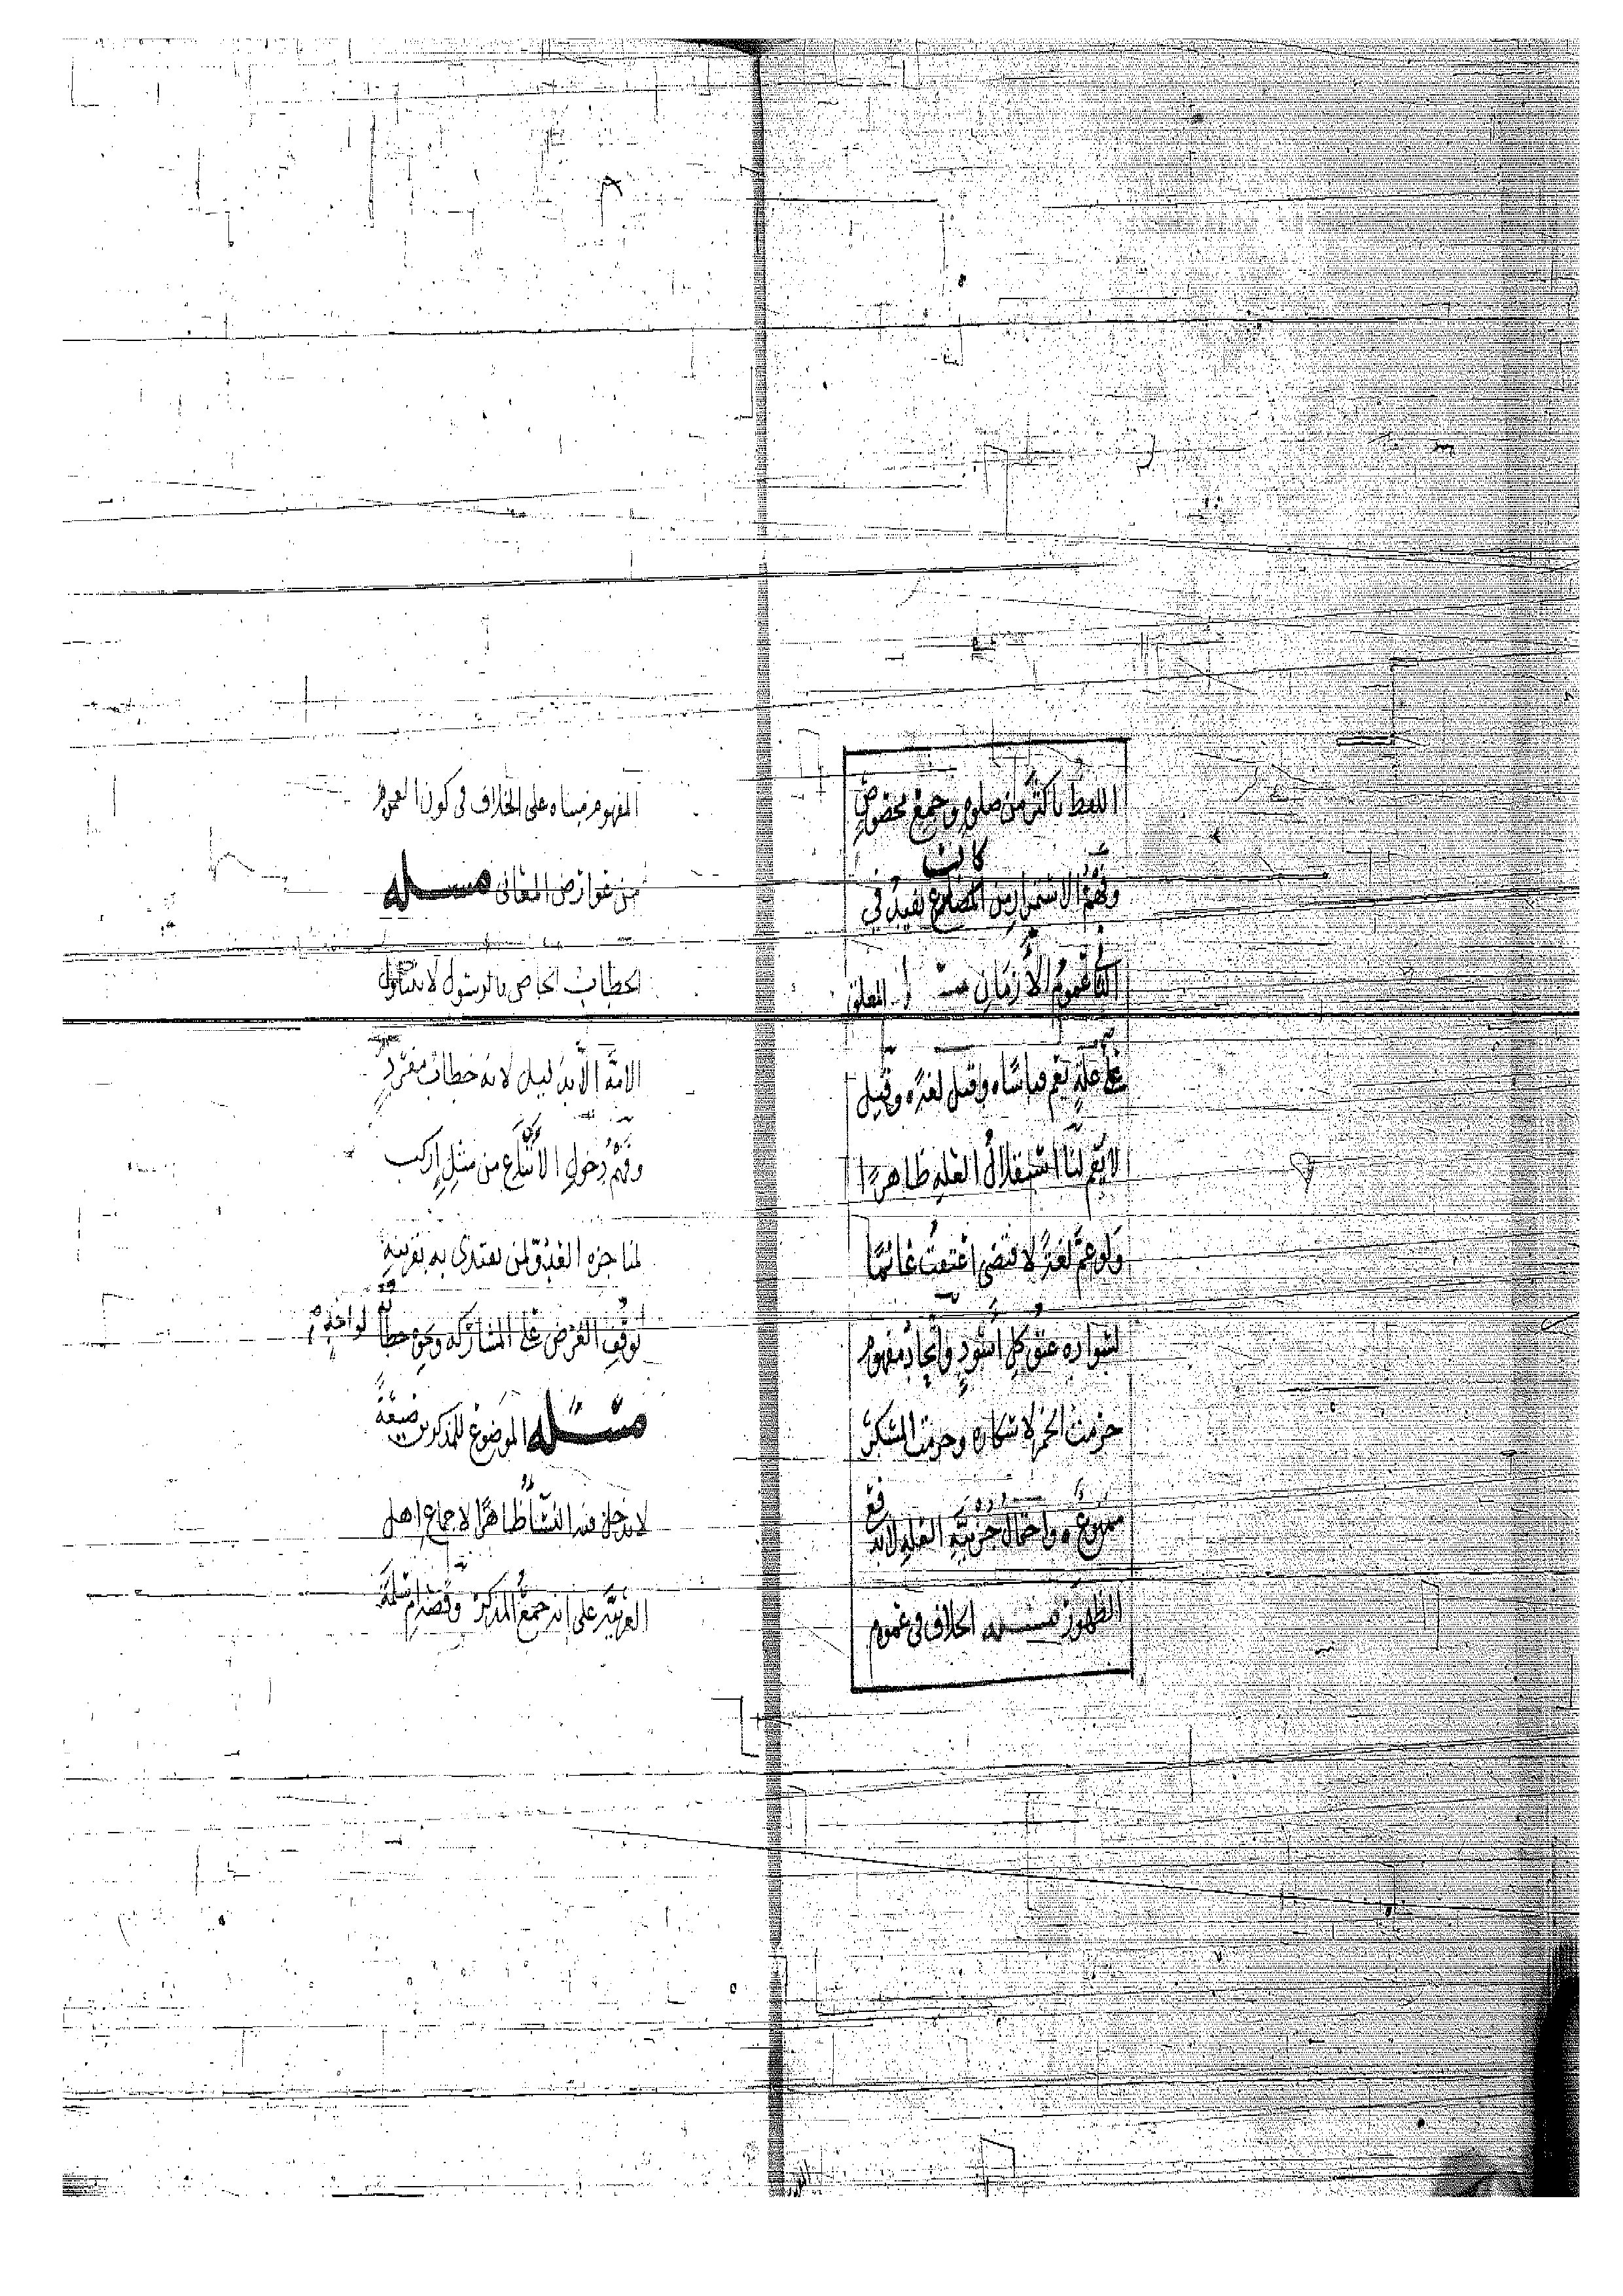 اللفظ باكثر من صلوه وجمع مخصوص
وتفهم الاستمرار من المضارع لفيد في
كانت
عموم الازمان مسـ المعلق
على علة يعم قياسا وقيل لغة وقيل
لا يعم لنا استقلال العله ظاهرا
ولو عم لغة لاقتضى اعتقت غانما
لسواده عتق كل اسود واتحاد مفهوم
حرمت الخمر لاسكاره وحرمت المسكر
ممنوع واحتمال جزئية العله لا يدفع
الظهور مسـله الخلاف في عموم
المفهوم مبناه على الخلاف في كون العموم
من عوارض المعاني مسـله
الخطاب الخاص بالرسول لا يتناول
الامة الا بدليل لانه خطاب مفرد
وفهم دخول الاتباع من مثل اركب
لمناجزه العدو لمن يقتدى به بقرينة
توقف الغرض على المشاركه ونحوه خطابه لواحد
مسـله الموضوع للمذكر من صيغة
لا يدخل فيه النسا ظاهرا لاجماع اهل
العربية على انه جمع المذكر وقصد ام سلمة